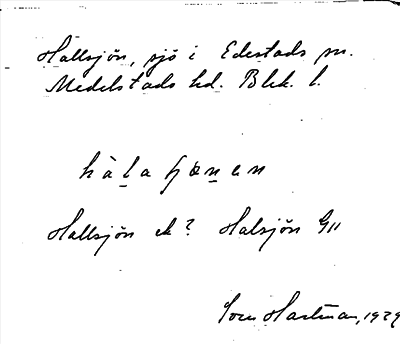 Hallsjön, sjö i Edestads sn.
Medelstads hd. Blek. l.
Hallsjön ek? Halsjön G11
Tore Hartman, 1929